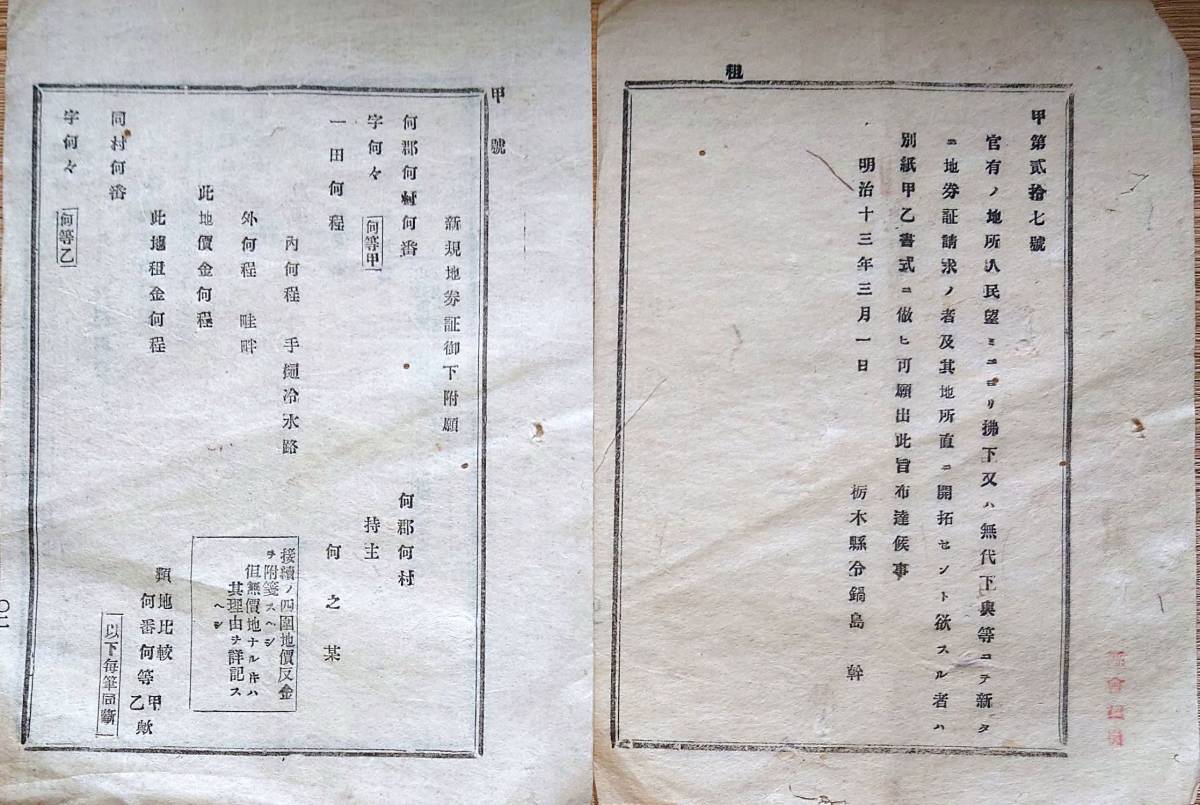 租
甲第貳拾七號
官有ノ地所人民望ミニヨリ拂下又ハ無代下與等ニテ新タ
ニ地券証請求ノ者及其地所直ニ開拓セント欲スル者ハ
別紙甲乙書式ニ倣ヒ可願出此旨布達候事
明治十三年三月一日
栃木縣令鍋島 幹
甲號
新規地券証御下附願
何郡何村
持主
何之某
何郡何村何番
字何々 何等甲
一田何程
內何程 手繩冷水路
外何程 畦畔
此地價金何程
此地租金何程
接續ノ四圍地價反金
ヲ附箋スヘシ
但無價地ナルキハ
其理由ヲ詳記ス
ヘシ
類地比較
何番何等甲乙歟
同村何番
字何々 何等乙
以下每筆同斷